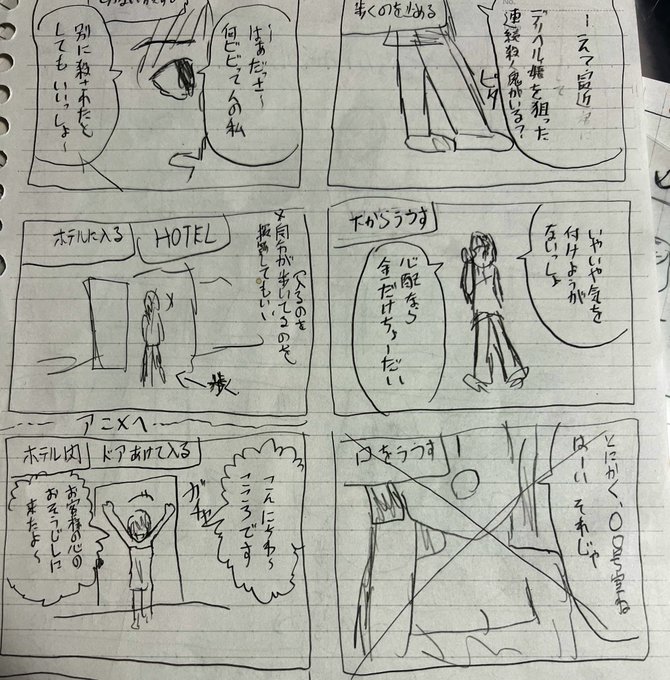 えて、最近
デリヘル嬢を狙った
連続殺人鬼がいる？
歩くのを止める
ピタ
はぁだっさ〜
何ビビってんの私
別に殺されたと
してもいいっしょ〜
いやいや気を
付けようが
ないっしょ
だからうつす
心配なら
金だけちょーだい
入るのを
※自分が歩いてるのを
撮影してもいい
HOTEL
ホテルに入る
歩く
アニメへ
とにかく、〇〇号室ね
はーい それじゃ
口をうつす
こんにちわ〜
こころです
ガチャ
ドアあけて入る
ホテル内
お客様の心の
おそうじしに
来たよ〜